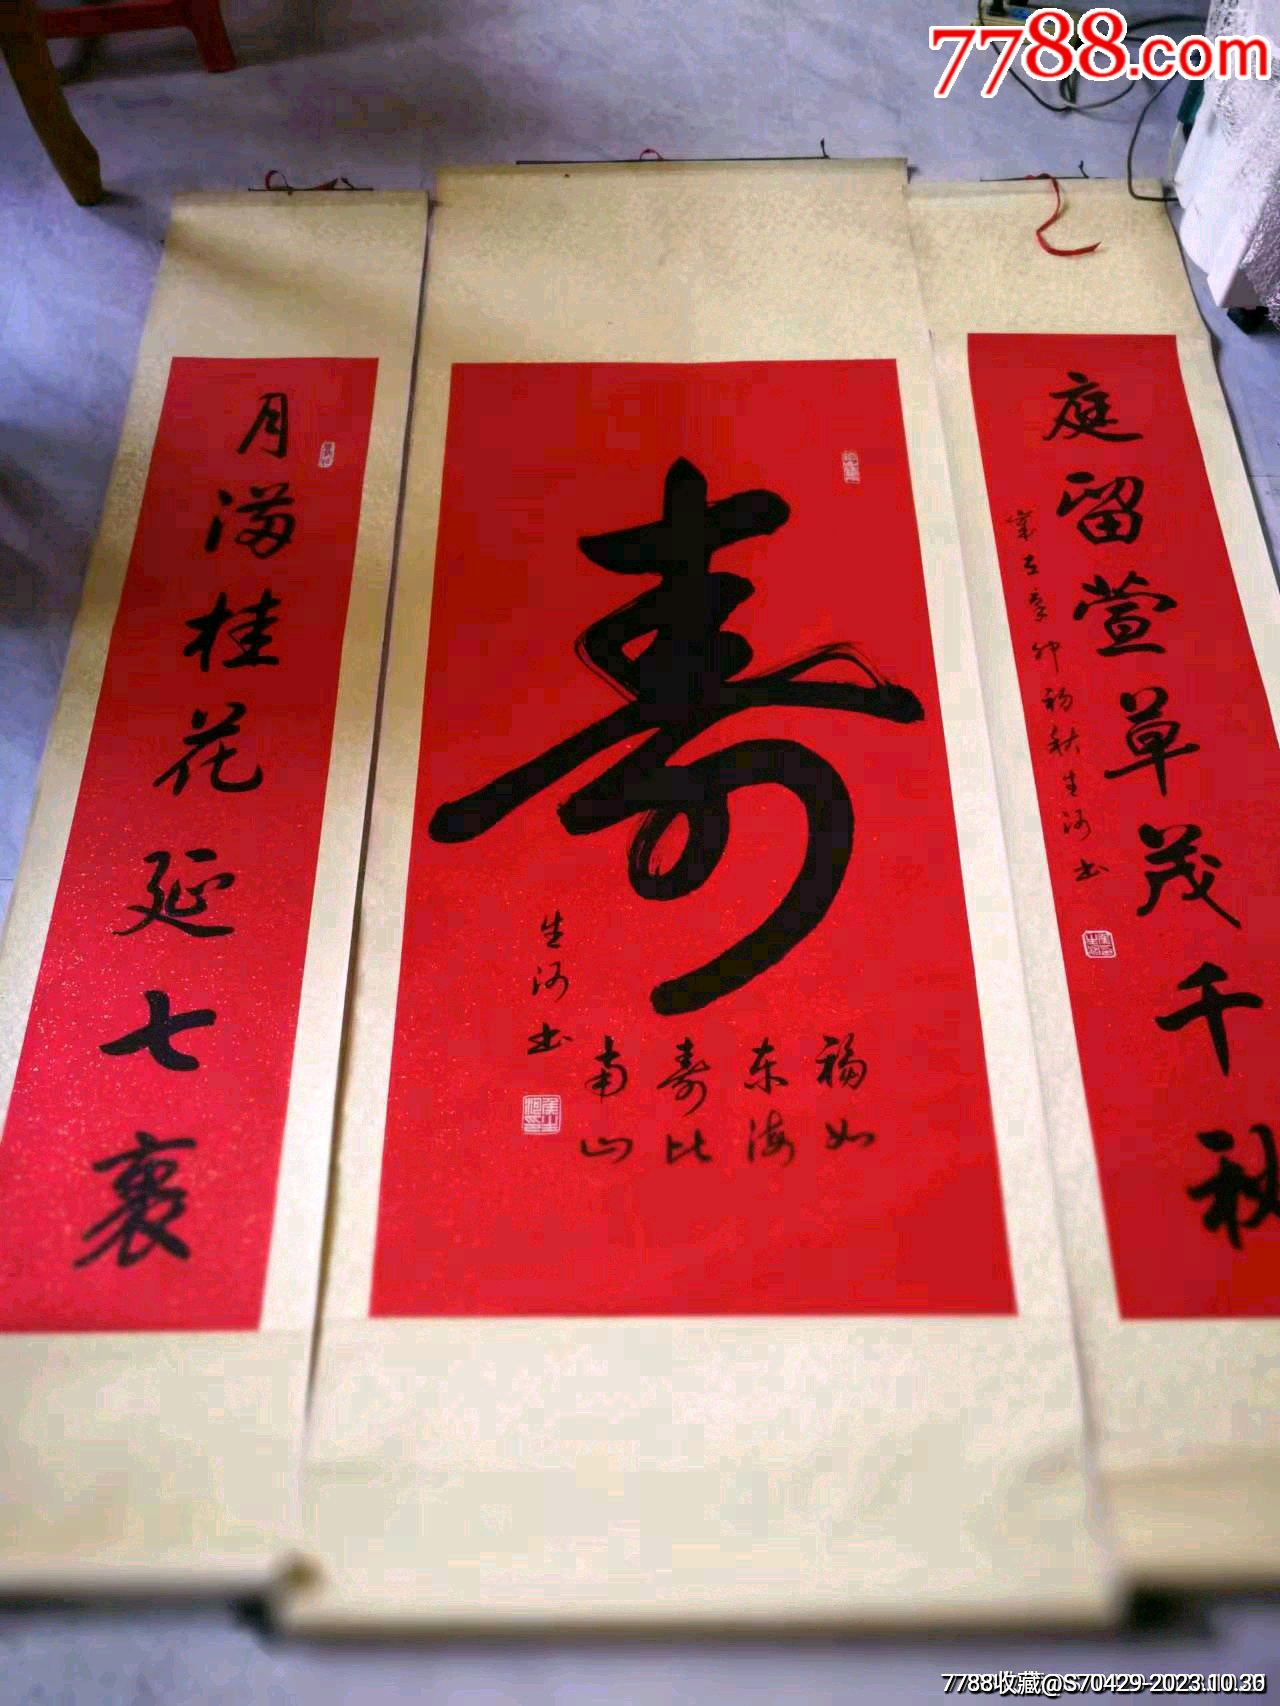 7788.com
庭留萱草茂千秋
岁在辛卯初秋生河书
寿
福如
东海
寿比
南山
生河书
月满桂花延七裏
7788收藏@S70429-2023.10.30